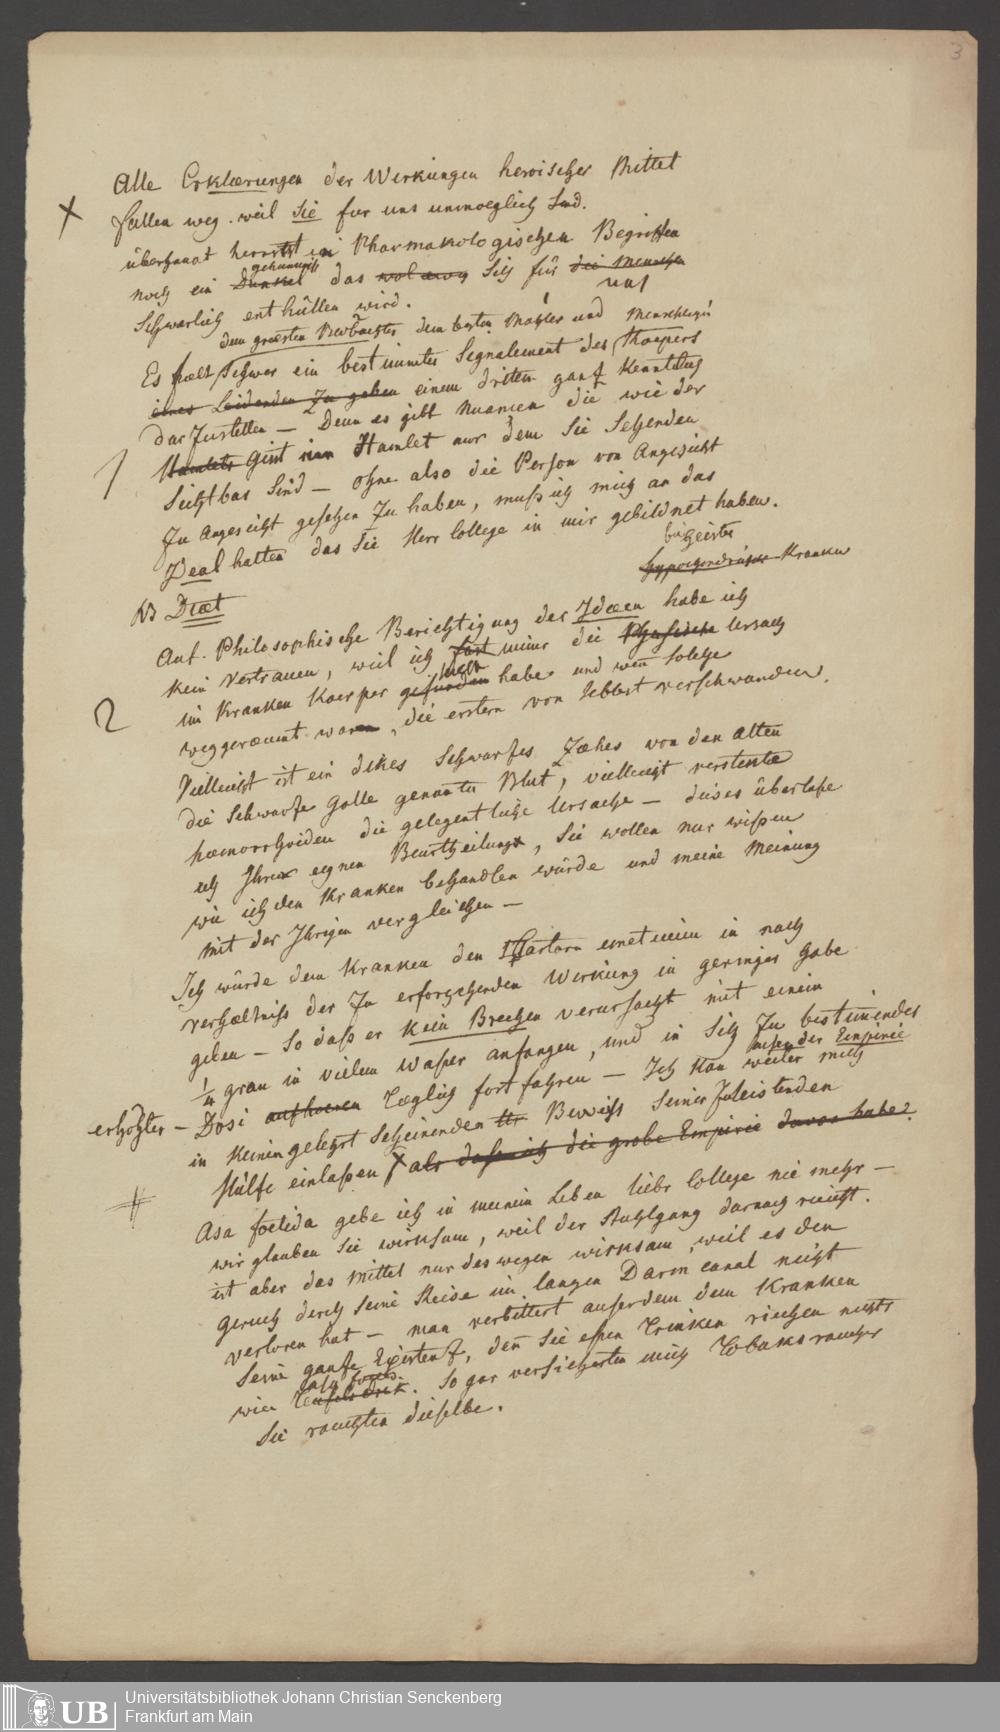 3
Alle Erklærungen der Werkungen heroischer Mittel
X fallen weg. weil Sie fur uns unmoeglich sind.
überhaupt herrscht in Pharmakologischen Begriffen
noch ein Dunkel das wol ewig sich für die Menschen
uns
schwerlich enthüllen wird.
dem groesten Beobachter dem besten Mahler und
Es hælt schwer ein bestimmtes Signalement des Koerpers
eines Leidenden zu geben einem dritten ganz Kenntlich
darzustellen — Denn es gibt Nuancen die wie der
1 Hamlets Geist im Hamlet nur dem Sie Sehenden
Sichtbar sind — ohne also die Person von Angesicht
zu Angesicht gesehen zu haben, muß ich mich an das
Ideal halten das Sie Herr College in mir gebildnet haben.
begeisterte
hypochondrische Kranke
NB Diæt
Auf Philosophische Berichtigung der Idæen habe ich
kein Vertrauen, weil ich fast immer die Physische Ursach
2 im Kranken Koerper gefunden habe und wen solche
weggeræumt waren, die erstern von selbst verschwanden.
Vielleicht ist ein dikes scharfes zæhes von den Alten
die Schwarze Galle genantes Blut, vielleicht versteckte
hæmorrhoiden die gelegentliche Ursache — dieses überlaße
ich Ihrer eignen Beurtheilung, Sie wollen nur wißen
wie ich den Kranken behandlen würde und meine Meinung
mit der Ihrigen vergleichen —
Ich würde dem Kranken den Tartarn emeticum in nach
Verhæltniß der zu erfolgenden Werkung in geringer Gabe
geben — So daß er kein Brechen verursacht mit einem
1/4 gran in vielem Waßer anfangen, und in sich zu bestimmender
außer der Empirie
erhöhter — Dosi aufhoeren Tæglich fortfahren — Ich kan weiter mich
in keinen gelehrt scheinenden Beweiß seiner zuleistenden
Hülfe einlaßen als daß ich die grobe Empirie davon habe.
# Asa foetida gebe ich in meinem Leben liebr College nie mehr —
wir glauben Sie wirksam, weil der Stuhlgang darnach riecht.
ist aber das Mittel nur deswegen wirksam, weil es den
Geruch durch seine Reise im langen Darmcanal nicht
verloren hat — man verbittert außerdem dem Kranken
Seine ganze Existenz, den Sie eßen Trinken riechen nichts
asa foetid.
wie Teufelsdrek. So gar versicherten mich Tobaksraucher
Sie rauchten dieselbe.
UB
Universitätsbibliothek Johann Christian Senckenberg
Frankfurt am Main